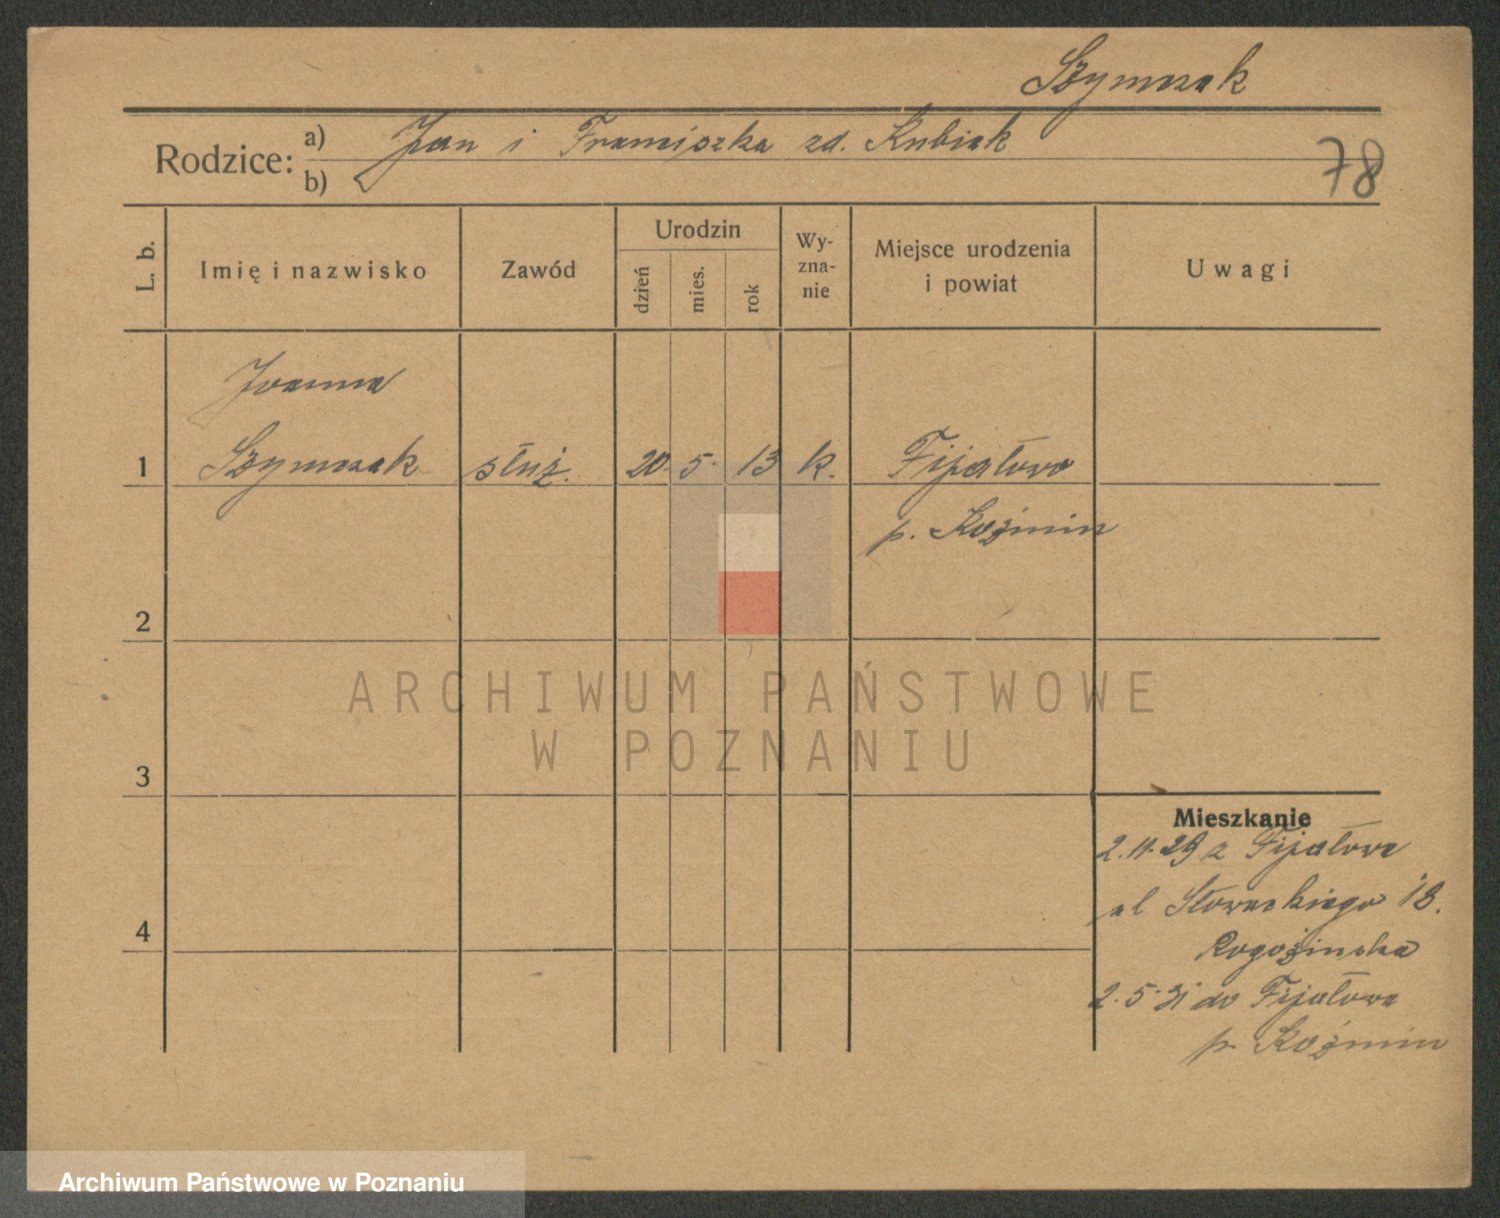 Szymczak
Rodzice: a) Jan i Franciszka zd. Kubiak
b)
78
L. b.
Imię i nazwisko
Zawód
Urodzin
dzień
mies.
rok
Wy-
zna-
nie
Miejsce urodzenia
i powiat
Uwagi
Joanna
1 Szymczak służ. 20. 5. 13 k. Fijałowo
p. Koźmin
2
3
4
ARCHIWUM PAŃSTWOWE
W POZNANIU
Mieszkanie
2.11.29 z Fijałowa
ul Słowackiego 18.
Rogozińska
2.5.31 do Fijałowa
p. Koźmin
Archiwum Państwowe w Poznaniu